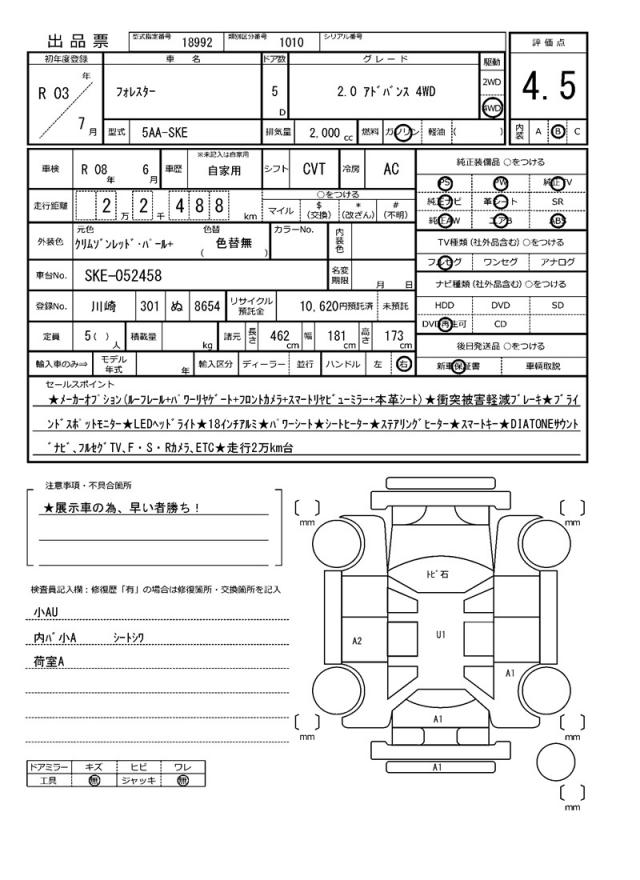 出品票 型式指定番号 18992 類別区分番号 1010 シリアル番号
評価点
4.5
内装 A B C
初年度登録 車名 ドア数 グレード 駆動
R 03 年 7 月 フォレスター 5 D 2.0 アドバンス 4WD 2WD 4WD
型式 5AA-SKE 排気量 2,000 cc 燃料 ガソリン 軽油 ( )
車検 R 08 年 6 月 車歴 ※未記入は自家用 自家用 シフト CVT 冷房 AC
走行距離 2 万 2 千 4 8 8 km ○をつける マイル $ (交換) * (改ざん) # (不明)
外装色 元色 クリムゾンレッド・パール+ 色替 ( 色替無 ) カラーNo. 内装色
車台No. SKE-052458 名変期限 月 日
登録No. 川崎 301 ぬ 8654 リサイクル預託金 10,620円預託済 未預託
定員 5( ) 人 積載量 kg 諸元 長さ 462 cm 幅 181 cm 高さ 173 cm
輸入車のみ⇒ モデル年式 年 輸入区分 ディーラー 並行 ハンドル 左 右
純正装備品 ○をつける
PS PW 純正TV
純正ナビ 革シート SR
純正AW エアB ABS
TV種類 (社外品含む) ○をつける
フルセグ ワンセグ アナログ
ナビ種類 (社外品含む) ○をつける
HDD DVD SD
DVD再生可 CD
後日発送品 ○をつける
新車保証書 車輌取説
セールスポイント
★メーカーオプション(ルーフレール+パワーリヤゲート+フロントカメラ+スマートリヤビューミラー+本革シート)★衝突被害軽減ブレーキ★ブライ
ンドスポットモニター★LEDヘッドライト★18インチアルミ★パワーシート★シートヒーター★ステアリングヒーター★スマートキー★DIATONEサウント
゛ナビ、フルセグTV、F・S・Rカメラ、ETC★走行2万km台
注意事項・不具合箇所
★展示車の為、早い者勝ち!
検査員記入欄:修復歴「有」の場合は修復箇所・交換箇所を記入
小AU
内パ小A シートシワ
荷室A
ドアミラー キズ ヒビ ワレ
工具 無 ジャッキ 無
mm mm
トビ石
A2 U1
A1
A1
mm mm
A1
mm